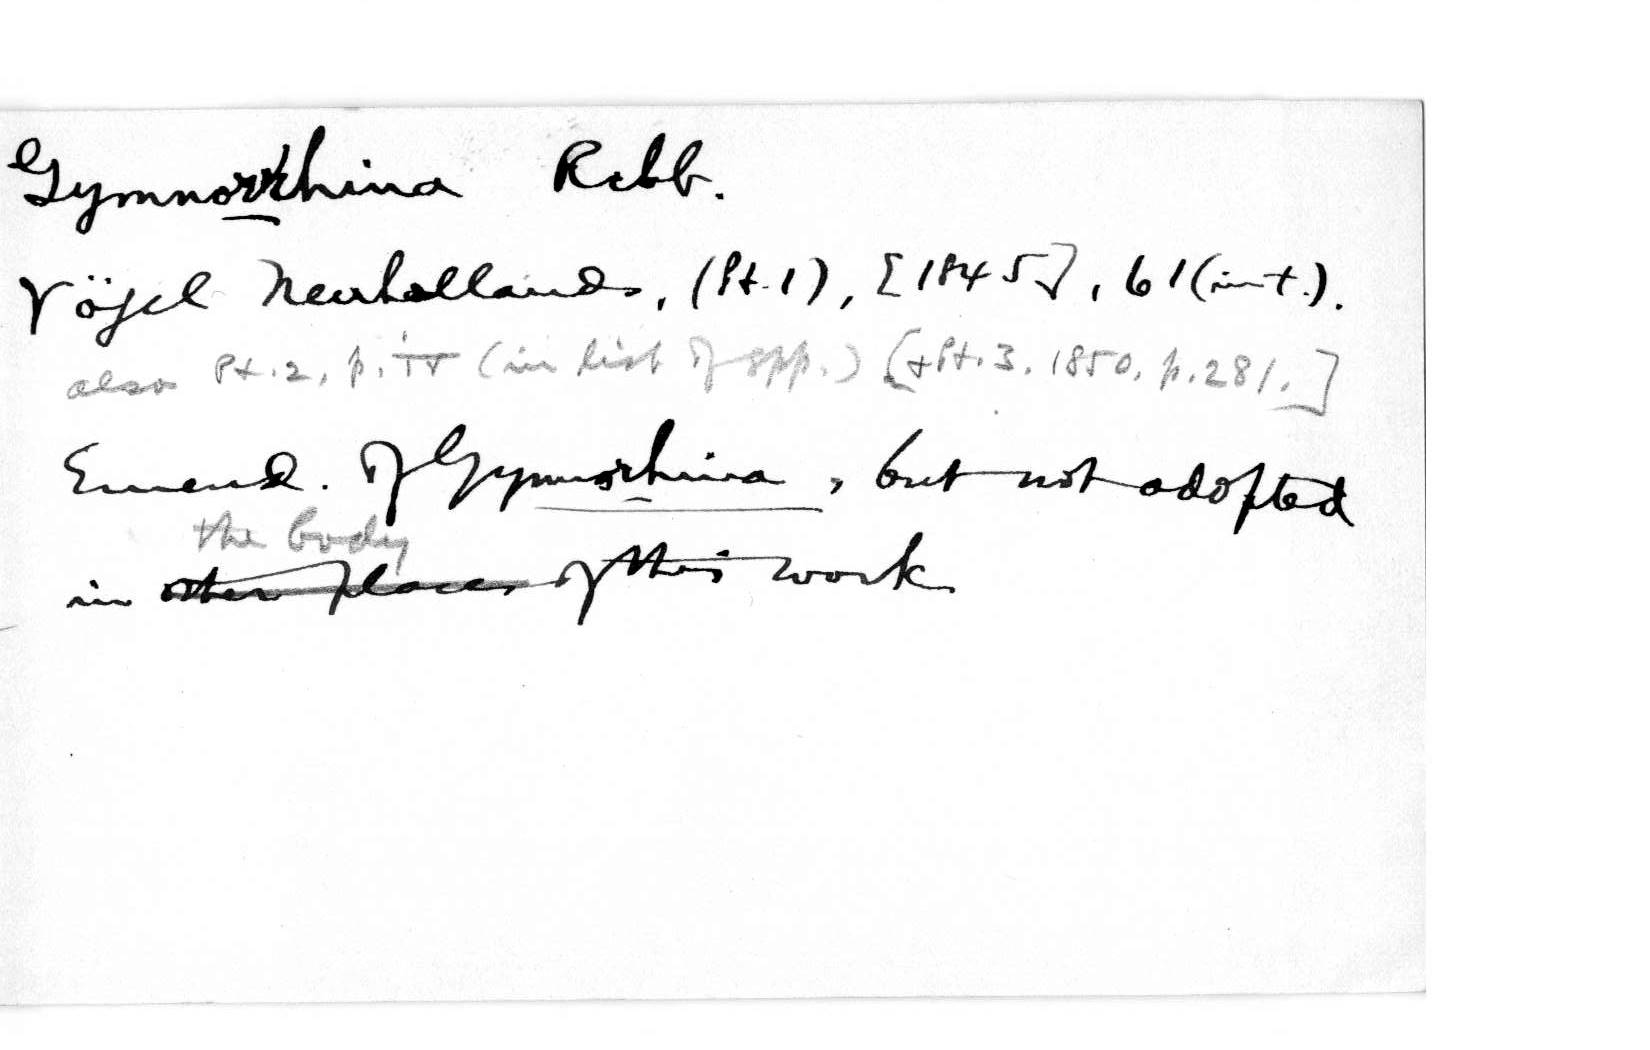 Gymnorrhina Rchb.
Vögel Neuhollands, (Pt.1), [1845], 61 (int.).
also Pt.2, p. ii (in list of spp.) [+Pt.3. 1850, p.281.]
Emend. of Gymnorhina, but not adopted
the body
in other places of this work